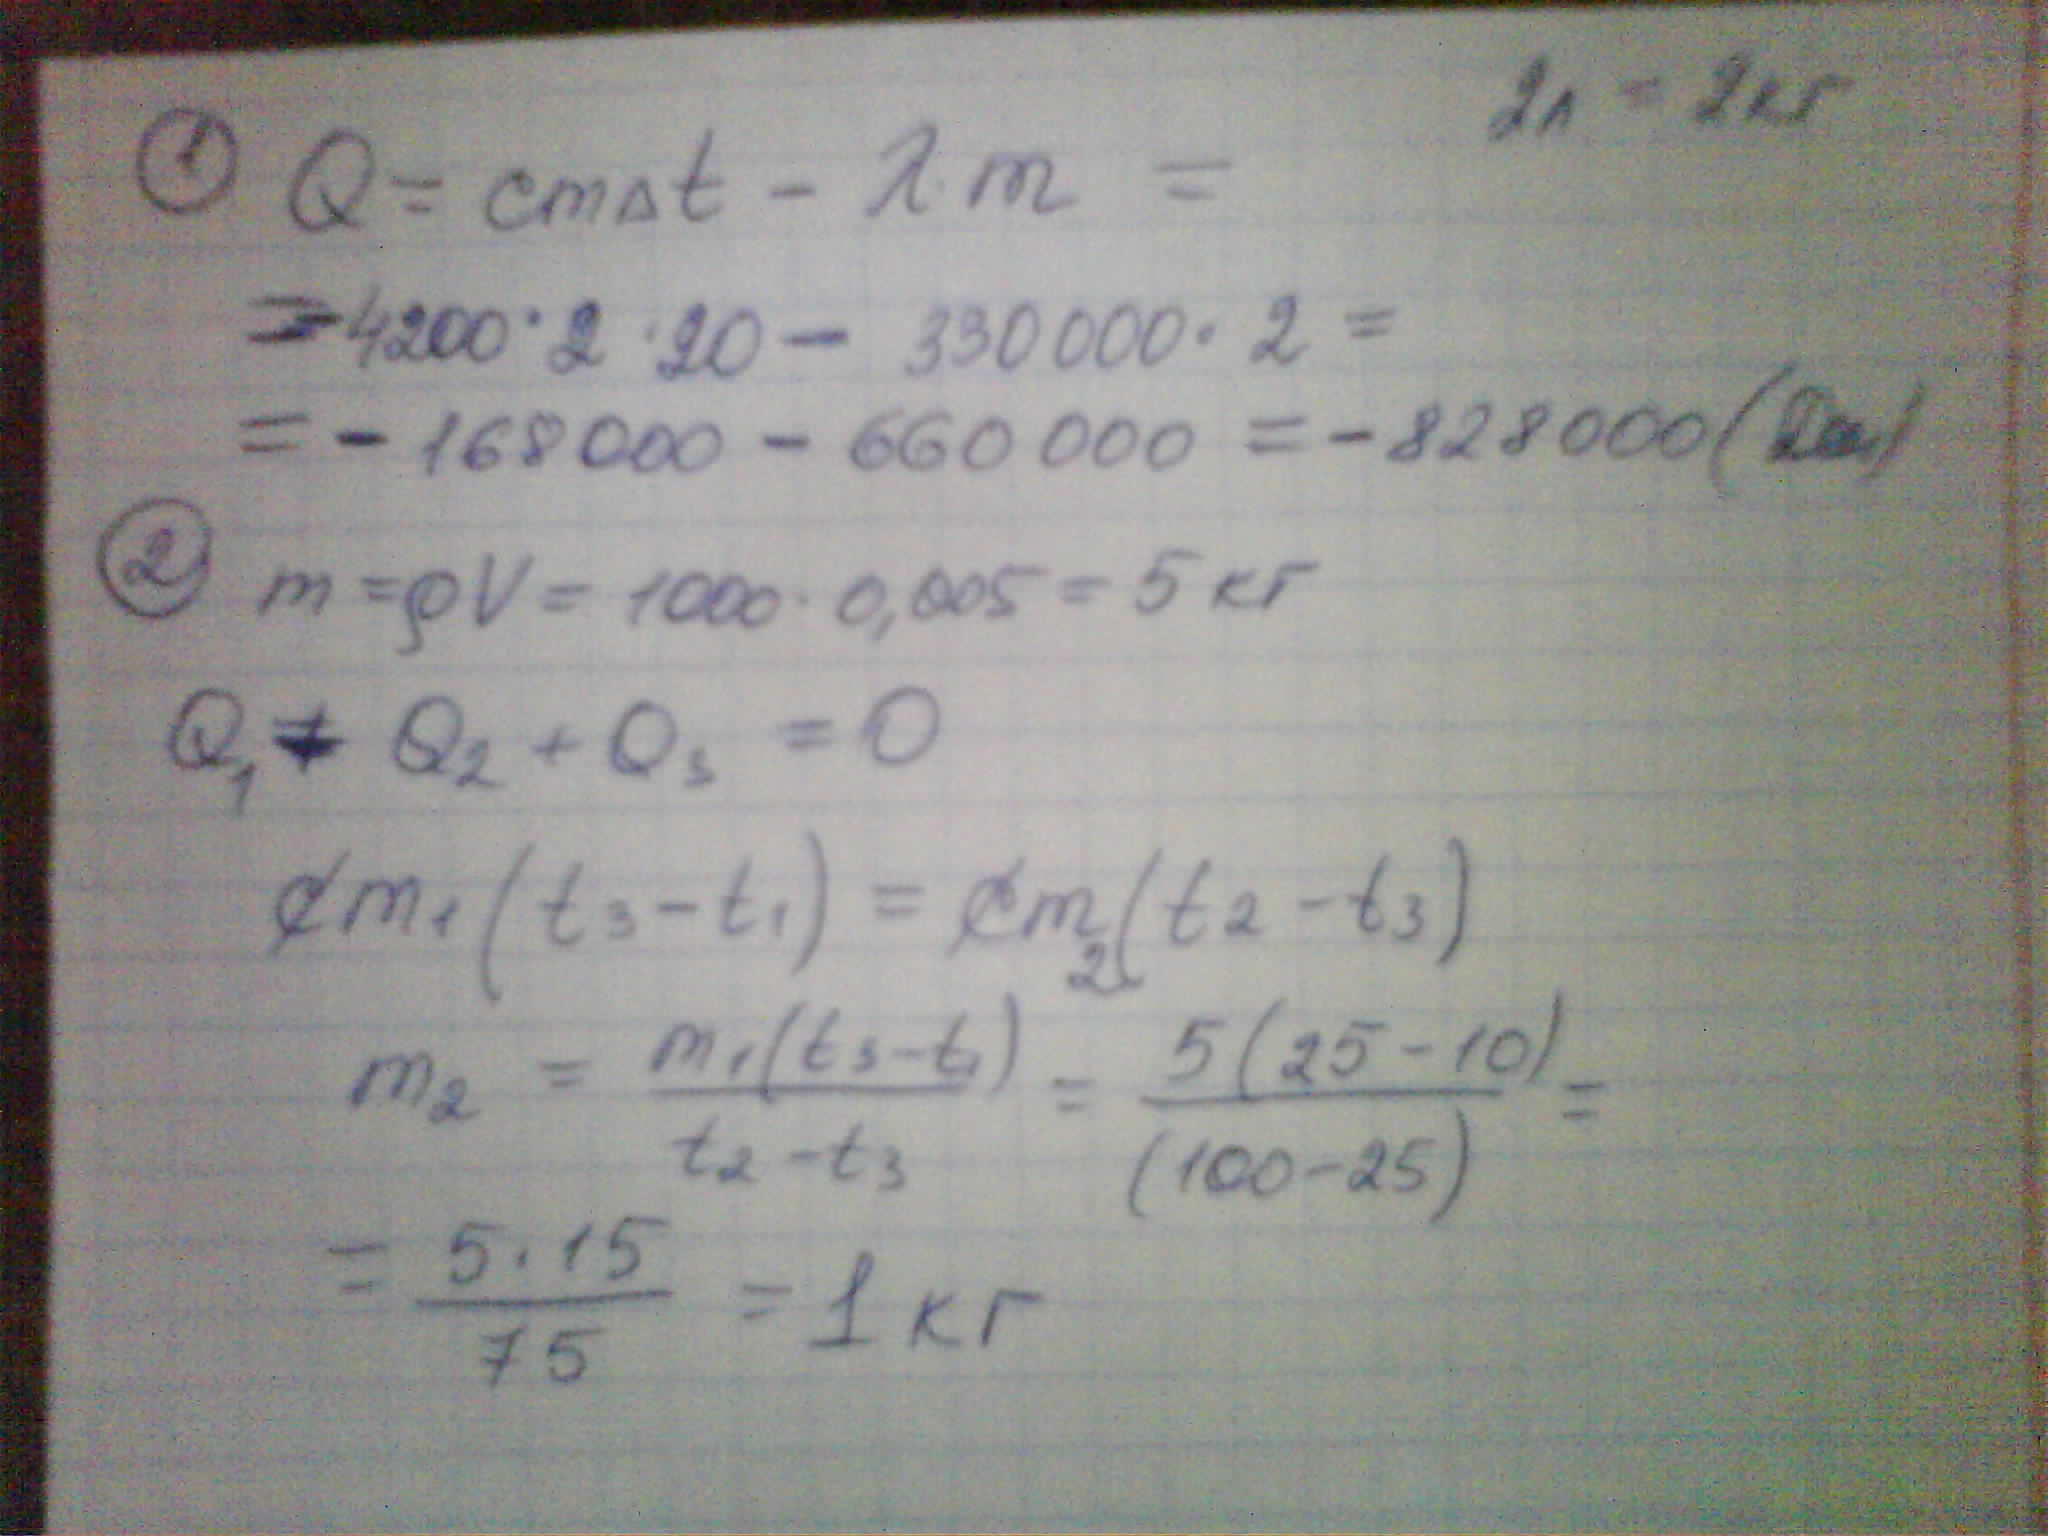 2л = 2кг
① Q = cmΔt - λm =
= -4200·2·20 - 330000·2 =
= - 168000 - 660000 = -828000 (Дж)
② m = ρV = 1000·0,005 = 5 кг
Q₁ + Q₂ + Q₃ = 0
cm₁(t₃-t₁) = cm₂(t₂-t₃)
m₂ = m₁(t₃-t₁) / t₂-t₃ = 5(25-10) / (100-25) =
= 5·15 / 75 = 1 кг